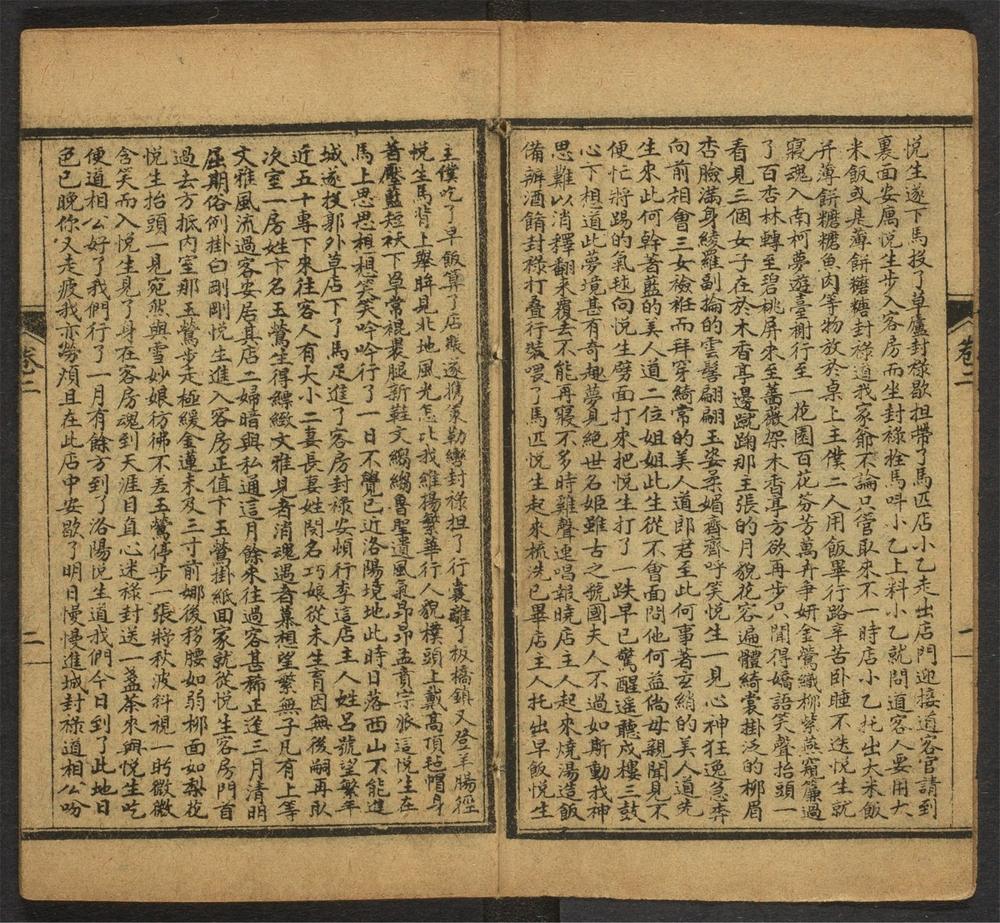 悅生遂下馬投了草廬封祿歇担帶了馬匹店小乙走出店門迎接道客官請到
裏面安厲悅生步入客房而坐封祿栓馬呌小乙上料小乙就問道客人要用大
米飯或是薄餅糖糖封祿道我家爺不論只管取來不一時店小乙托出大米飯
并薄餅糖糖魚肉等物放於桌上主僕二人用飯畢行路辛苦卧睡不迭悅生就
寢魂入南柯夢遊臺榭行至一花園百花芬芳萬卉爭妍金鶯織柳紫燕窺簾過
了百杏林轉至碧桃屏來至薔薇架木香亭方欲再步只聞得嬌語笑聲抬頭一
看見三個女子在於木香亭邊蹴踘那主張的月貌花容遍體綺裳掛泛的柳眉
杏臉滿身綾羅副掄的雲鬢翩翩玉姿柔媚齊齊呼笑悅生一見心神狂逸急奔
向前相會三女襝袵而拜穿綺常的美人道郎君至此何事著玄綃的美人道先
生來此何幹著藍的美人道二位姐姐此生從不會面問他何益倘母親聞見不
便忙將踢的氣毬向悅生劈面打來把悅生打了一跌早已驚醒遥聽戍樓三鼓
心下想道此夢境甚有奇趣夢見絕世名姬雖古之虢國夫人不過如斯動我神
思難以消釋翻來覆去不能再寢不多時雞聲連唱報曉店主人起來燒湯造飯
備辦酒餚封祿打叠行裝喂了馬匹悅生起來梳洗已畢店主人托出早飯悅生
卷二
一
主僕吃了早飯算了店賬遂攜策勒轡封祿担了行囊離了板橋鎮又登羊腸徑
悅生馬背上舉眸見北地風光怎比我維揚繁華行人貌樸頭上戴高頂毡帽身
著壓藍短袄下單常裩裹腿新鞋文縐縐魯聖遺風氣昂昂孟賁宗派這悅生在
馬上思思想想笑笑吟吟行了一日不覺已近洛陽境地此時日落西山不能進
城遂投郭外草店下了馬疋進了客房封祿安頓行李這店主人姓呂號望繁年
近五十專下來往客人有大小二妻長妻姓閔名巧娘從未生育因無後嗣再臥
次室一房姓卞名玉鶯生得縹緻文雅見者消魂遇者慕想望繁無子凡有上等
文雅風流過客安居其店二婦暗與私通這月餘來往過客甚稀正逢三月清明
屈期俗例掛白剛剛悅生進入客房正值卞玉鶯掛紙回家就從悅生客房門首
過去方抵內室那玉鶯步走極緩金蓮未及三寸前娜後移腰如弱柳面如梨花
悅生抬頭一見宛然與雪妙娘彷彿不差玉鶯停步一張將秋波斜視一眄微微
含笑而入悅生見了身在客房魂到天涯目直心迷祿封送一盞茶來與悅生吃
便道相公好了我們行了一月有餘方到了洛陽悅生道我們今日到了此地日
色已晚你又走疲我亦勞頓且在此店中安歇了明日慢慢進城封祿道相公吩
卷二
二